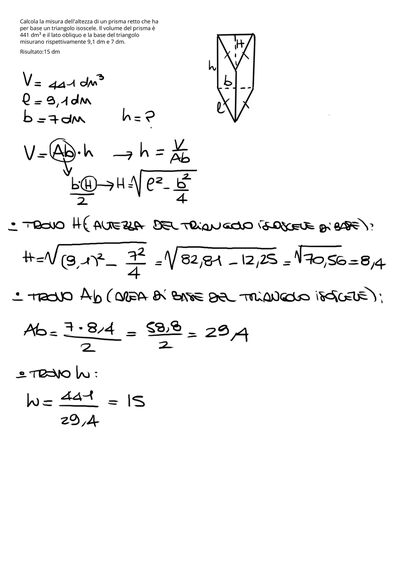 Calcola la misura dell'altezza di un prisma retto che ha
per base un triangolo isoscele. Il volume del prisma è
441 dm³ e il lato obliquo e la base del triangolo
misurano rispettivamente 9,1 dm e 7 dm.
Risultato:15 dm
H
h
b
ℓ
V = 441 dm³
ℓ = 9,1 dm
b = 7 dm h = ?
V = Ab · h → h = V/Ab
b·H/2 → H = √(ℓ² - b²/4)
• TROVO H (ALTEZZA DEL TRIANGOLO ISOSCELE DI BASE):
H = √((9,1)² - 7²/4) = √(82,81 - 12,25) = √70,56 = 8,4
• TROVO Ab (AREA DI BASE DEL TRIANGOLO ISOSCELE):
Ab = 7 · 8,4/2 = 58,8/2 = 29,4
• TROVO h:
h = 441/29,4 = 15